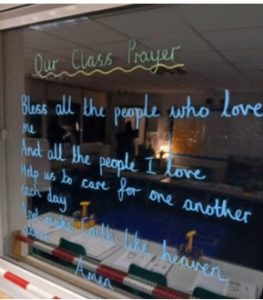 Our Class Prayer
Bless all the people who love
me
And all the people I love
Help us to care for one another
each day
And make earth like heaven
Amen